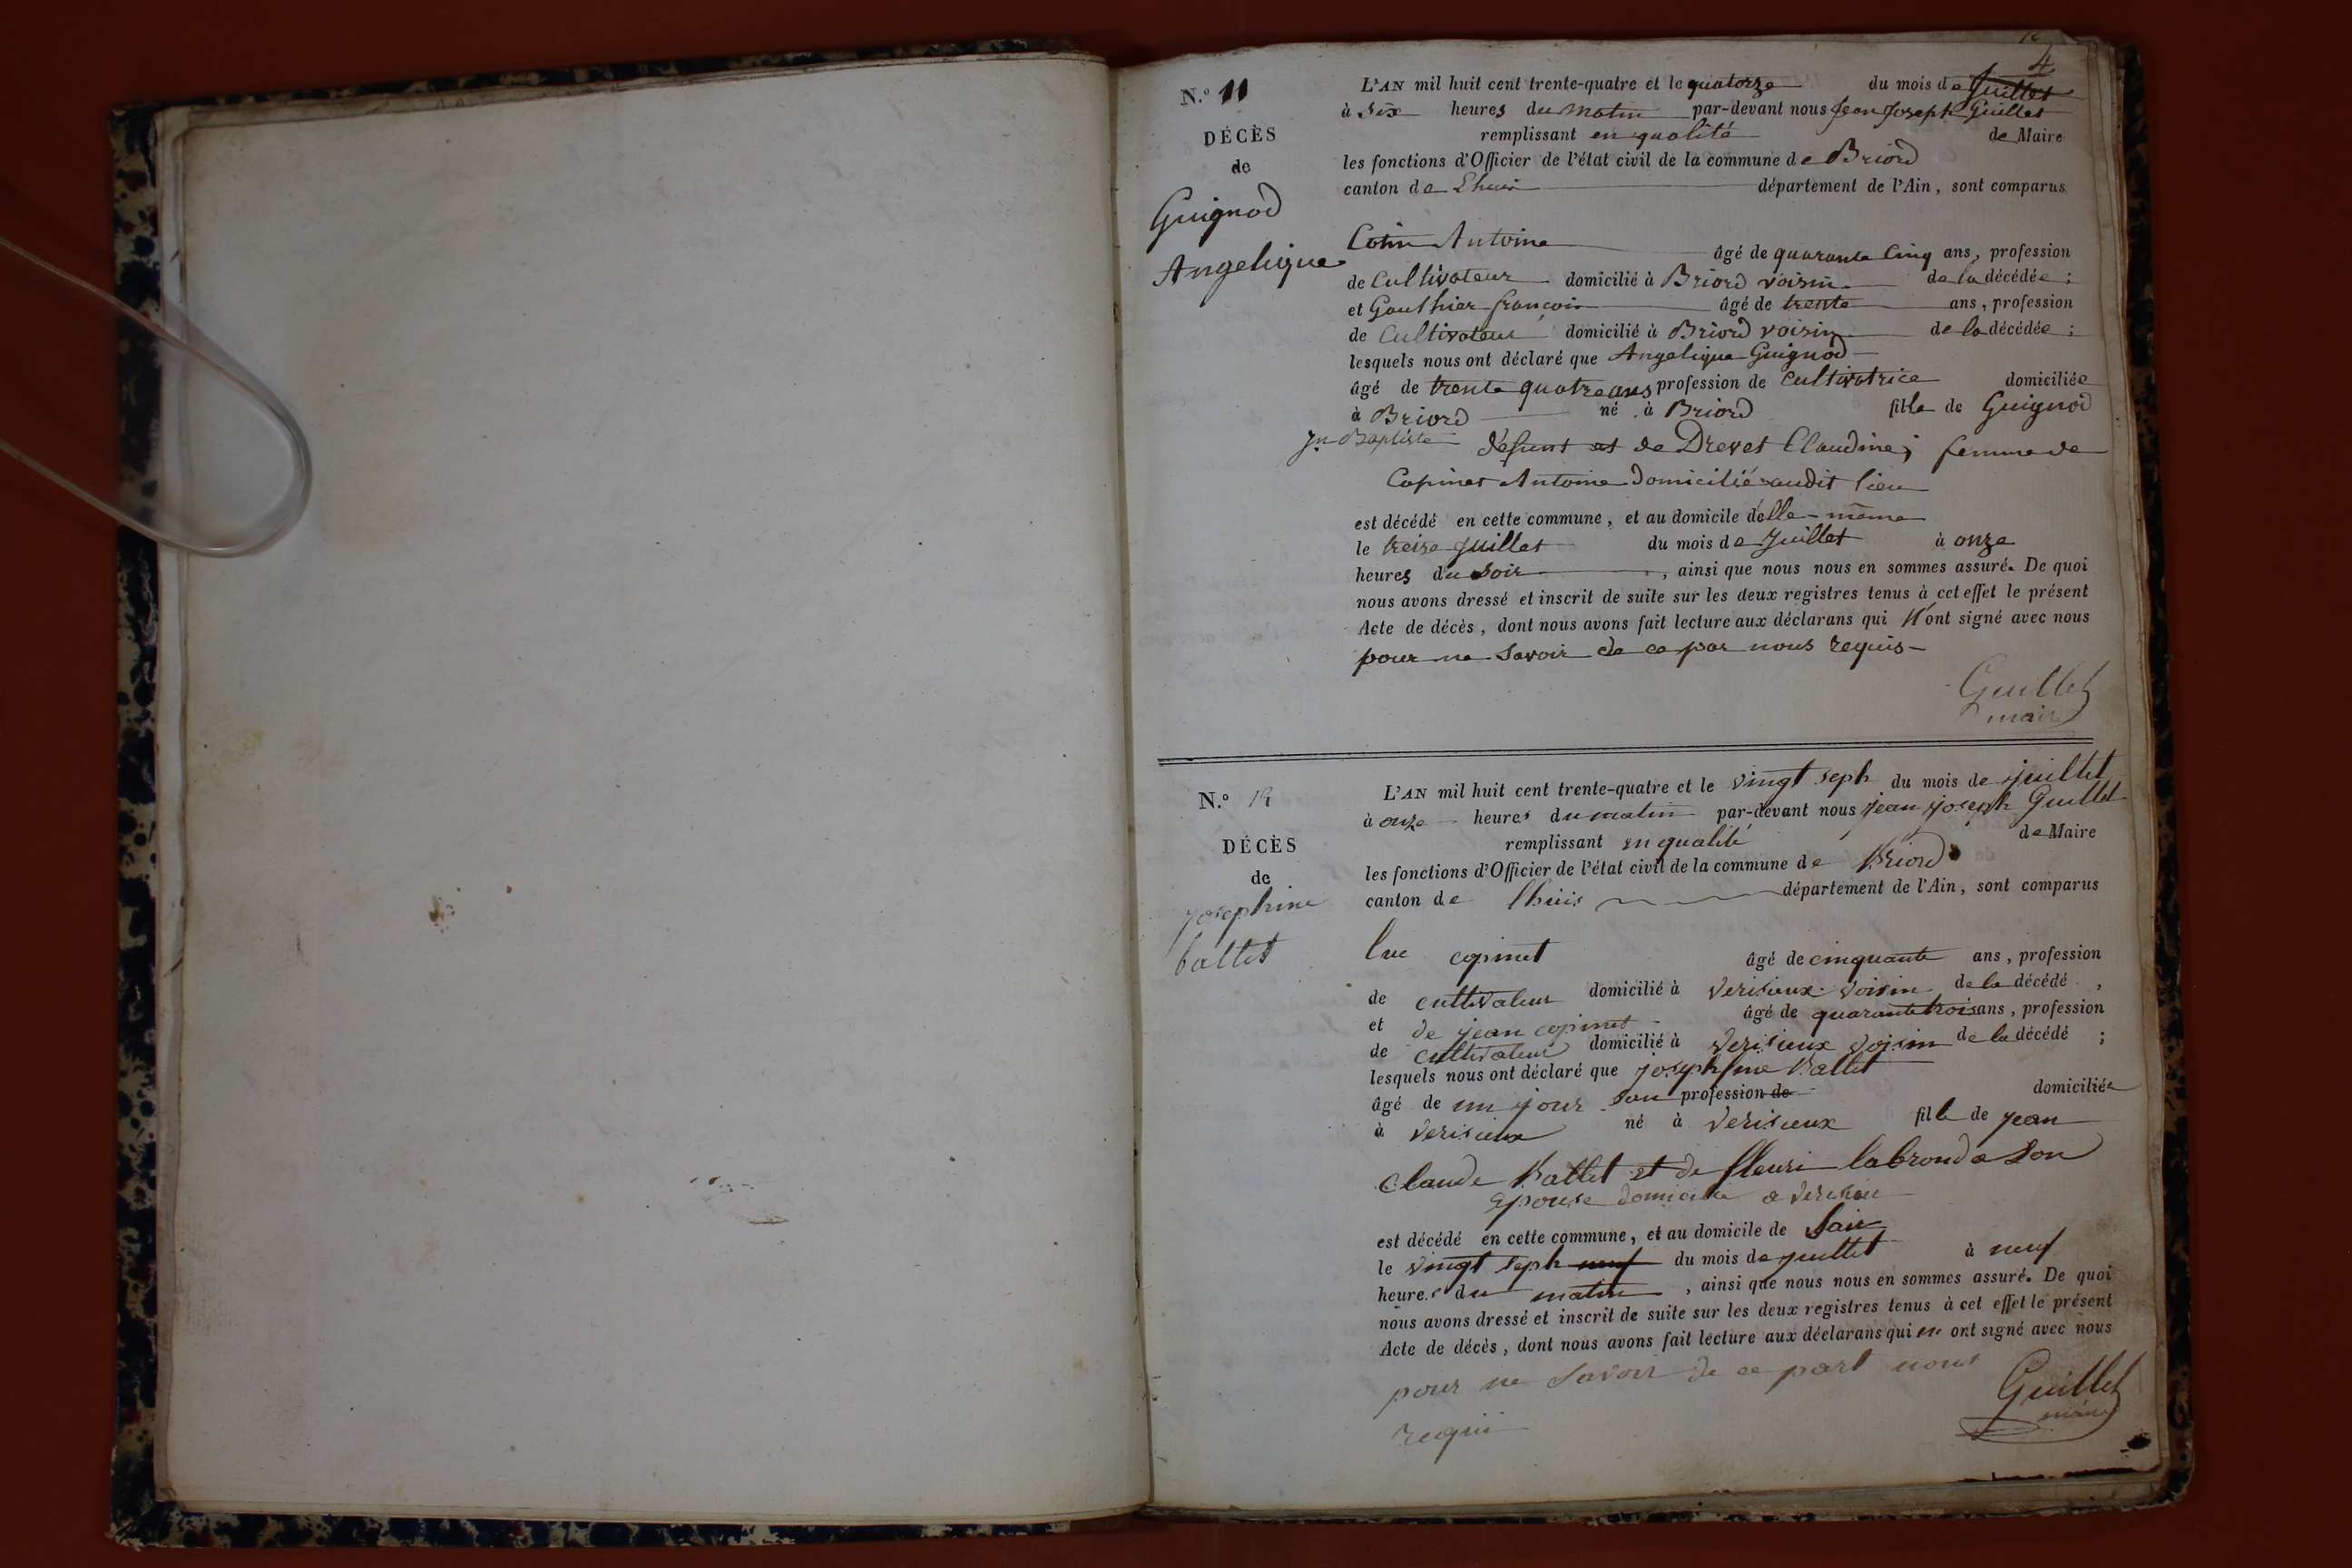 4
N.º 11
DÉCÈS
de
Guignod
Angelique
L'AN mil huit cent trente-quatre et le quatorze du mois de Juillet
à six heures du matin par-devant nous Jean Joseph Guillet
remplissant en qualité de Maire
les fonctions d'Officier de l'état civil de la commune de Briord
canton de Lhuis département de l'Ain, sont comparus
Cotin Antoine âgé de quarante cinq ans, profession
de Cultivateur domicilié à Briord voisin de la décédée ;
et Gauthier françois âgé de trente ans, profession
de Cultivateur domicilié à Briord voisin de la décédée ;
lesquels nous ont déclaré que Angelique Guignod
âgé de trente quatre ans profession de Cultivatrice domiciliée
à Briord né à Briord fille de Guignod
Jn Baptiste défunt et de Drevet Claudine ; femme de
Copinet Antoine domicilié audit lieu
est décédé en cette commune, et au domicile d'elle-même
le treize Juillet du mois de Juillet à onze
heures du soir, ainsi que nous nous en sommes assuré. De quoi
nous avons dressé et inscrit de suite sur les deux registres tenus à cet effet le présent
Acte de décès, dont nous avons fait lecture aux déclarans qui N'ont signé avec nous
pour ne savoir de ce par nous requis
Guillet
maire
N.º 12
DÉCÈS
de
josephine
ballet
L'AN mil huit cent trente-quatre et le vingt seph du mois de juillet
à onze heures du matin par-devant nous jean joseph Guillet
remplissant en qualité de Maire
les fonctions d'Officier de l'état civil de la commune de Briord
canton de lhuis département de l'Ain, sont comparus
luc copinet âgé de cinquante ans, profession
de cultivateur domicilié à verisieux voisin de la décédé ,
et de jean copinet âgé de quarante trois ans, profession
de cultivateur domicilié à verisieux voisin de la décédé ;
lesquels nous ont déclaré que josephine Ballet
âgé de un jour san profession de domiciliée
à verisieux né à verisieux fille de jean
claude Ballet et de fleuri labronde son
epouse domicilie a
est décédé en cette commune, et au domicile de
le vingt seph neuf du mois de juillet à neuf
heures du matin, ainsi que nous nous en sommes assuré. De quoi
nous avons dressé et inscrit de suite sur les deux registres tenus à cet effet le présent
Acte de décès, dont nous avons fait lecture aux déclarans qui n ont signé avec nous
pour ne savoir de ce part nous
requi
Guillet
maire